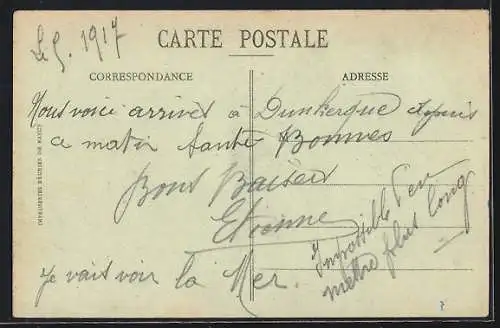 Le 9. 1917
CARTE POSTALE
CORRESPONDANCE
ADRESSE
Nous voici arrivés à Dunkerque depuis
ce matin Santé Bonnes
Bons Baisers
Etienne
Impossible d'en
mettre plus long
Je vais voir la Mer.
IMPRIMERIES RÉUNIES DE NANCY